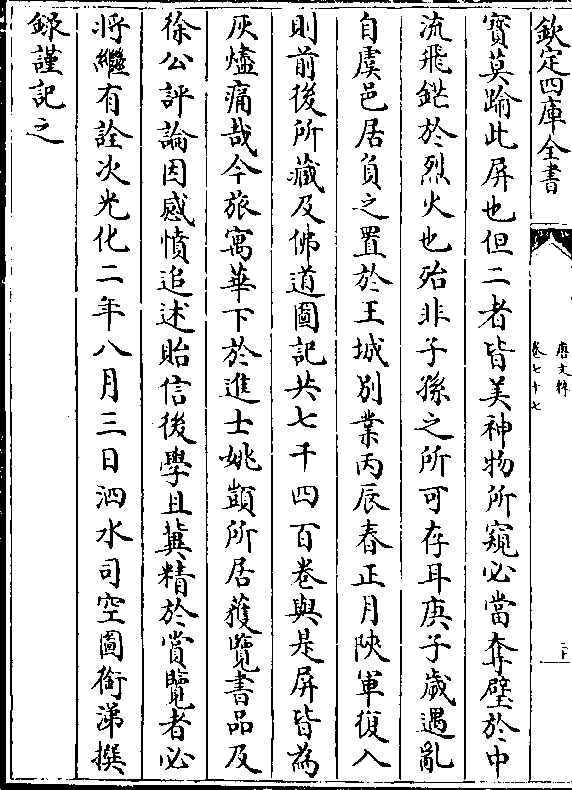 欽定四庫全書
唐文粹
卷七十七
寳莫踰此屏也但二者皆美神物所窺必當奪璧於中
流飛鋩於烈火也殆非子孫之所可存耳庚子歲遇亂
自虞邑居負之置於王城别業丙辰春正月陜軍復入
則前後所藏及佛道圖記共七千四百卷與是屏皆為
灰燼痛哉今旅寓華下於進士姚顗所居獲覽書品及
徐公評論因感憤追述貽信後學且冀精於賞覽者必
將繼有詮次光化二年八月三日泗水司空圖銜涕撰
録謹記之